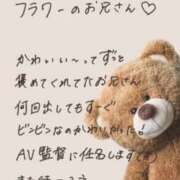 フラワーのお兄さん♡
かわいい〜ってずっと
褒めてくれてたお兄さん
何回出してもすーぐ
ビンビンなのかわいかった!
AV監督に任名します